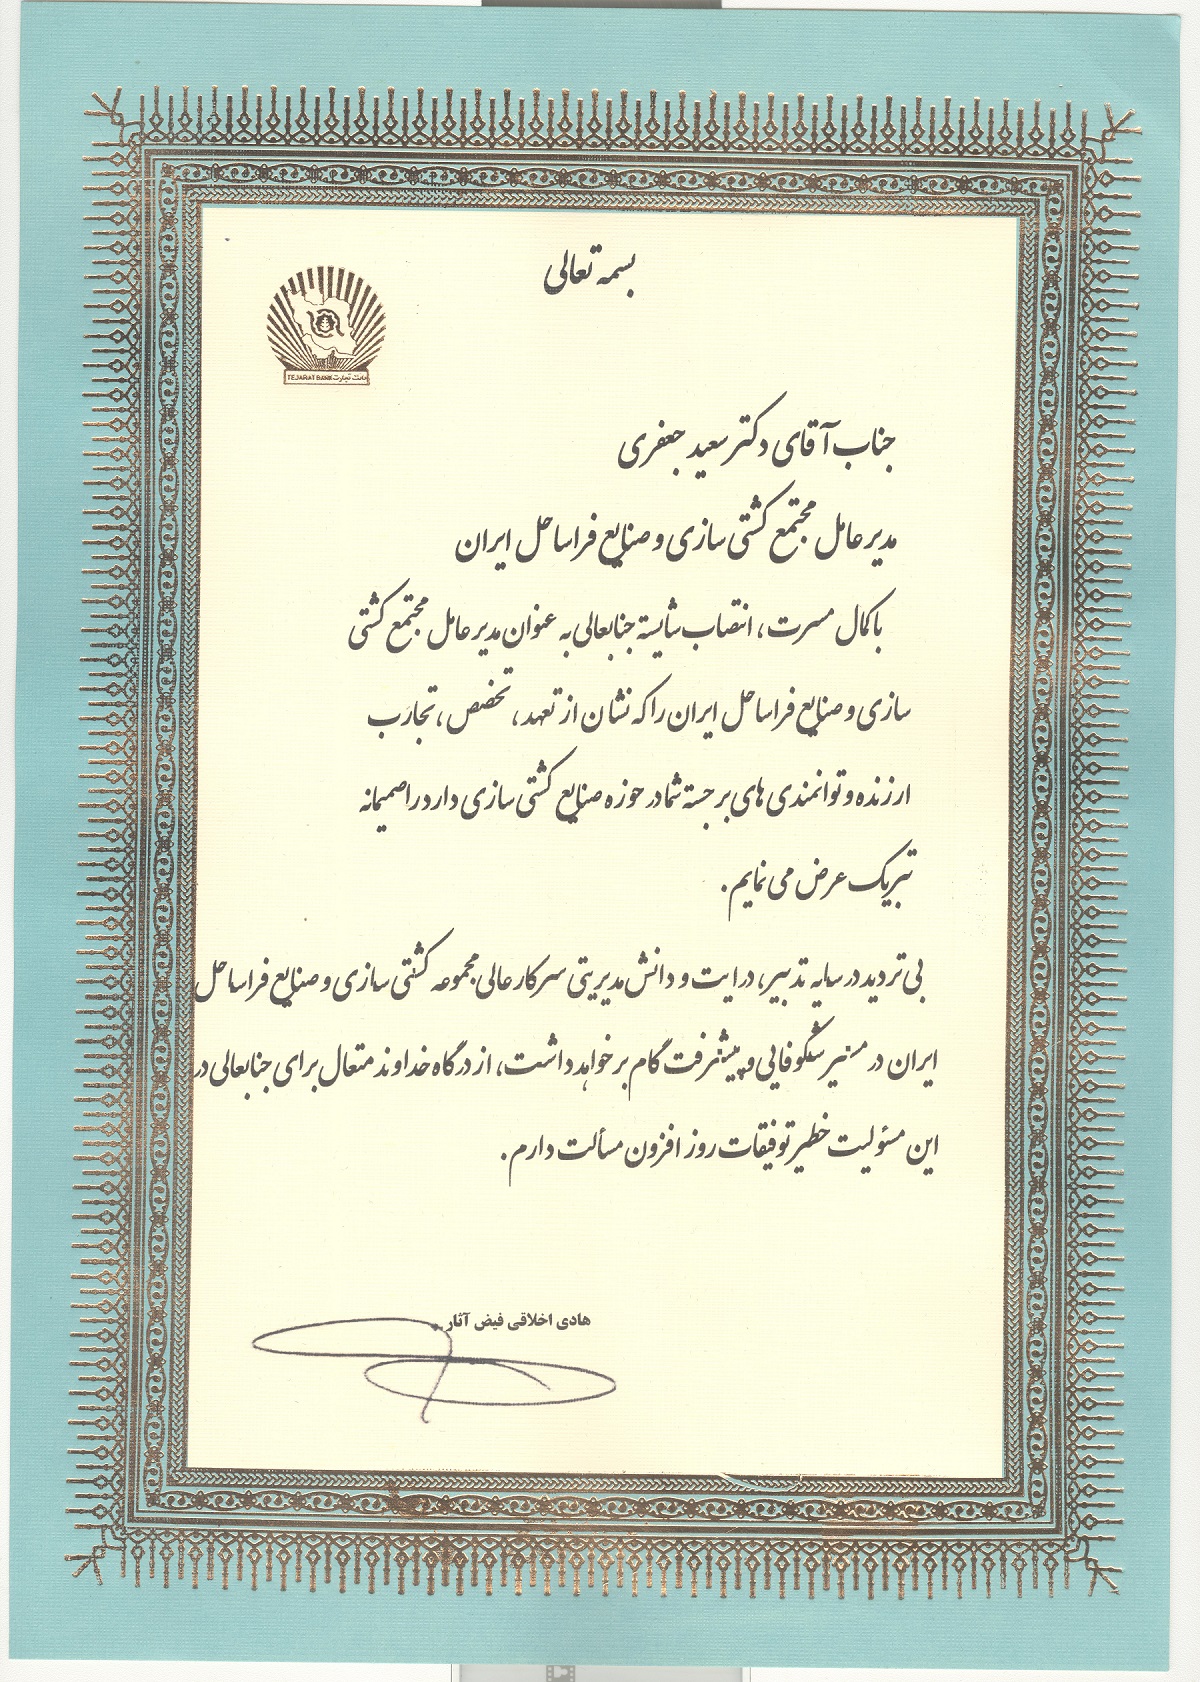 بسمه تعالی
TEJARAT BANK بانک تجارت
جناب آقای دکتر سعید جعفری
مدیر عامل مجتمع کشتی سازی و صنایع فراساحل ایران
با کمال مسرت، انتصاب شایسته جنابعالی به عنوان مدیر عامل مجتمع کشتی
سازی و صنایع فراساحل ایران را که نشان از تعهد، تخصص، تجارب
ارزنده و توانمندی های برجسته شما در حوزه صنایع کشتی سازی دارد را صمیمانه
تبریک عرض می نمایم.
بی تردید در سایه تدبیر، درایت و دانش مدیریتی سرکار عالی مجموعه کشتی سازی و صنایع فراساحل
ایران در مسیر شکوفایی و پیشرفت گام بر خواهد داشت، از درگاه خداوند متعال برای جنابعالی در
این مسئولیت خطیر توفیقات روز افزون مسألت دارم.
هادی اخلاقی فیض آثار